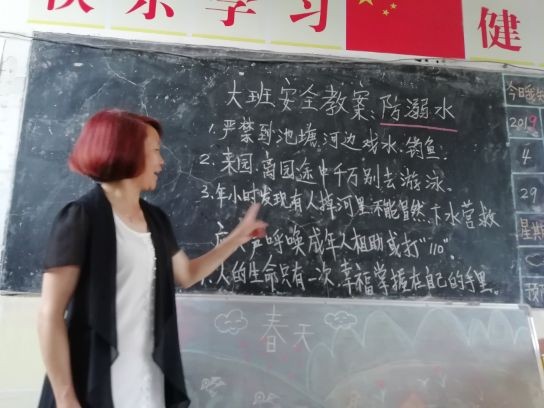 快乐学习
健
大班安全教案:防溺水
1.严禁到池塘、河边戏水、钓鱼.
2.来园、离园途中千万别去游泳.
3.年小时发现有人掉河里不能冒然下水营救
应 声呼唤成年人相助或打"110".
.人的生命只有一次.幸福掌握在自己的手里.
春天
2019
4
29
星期